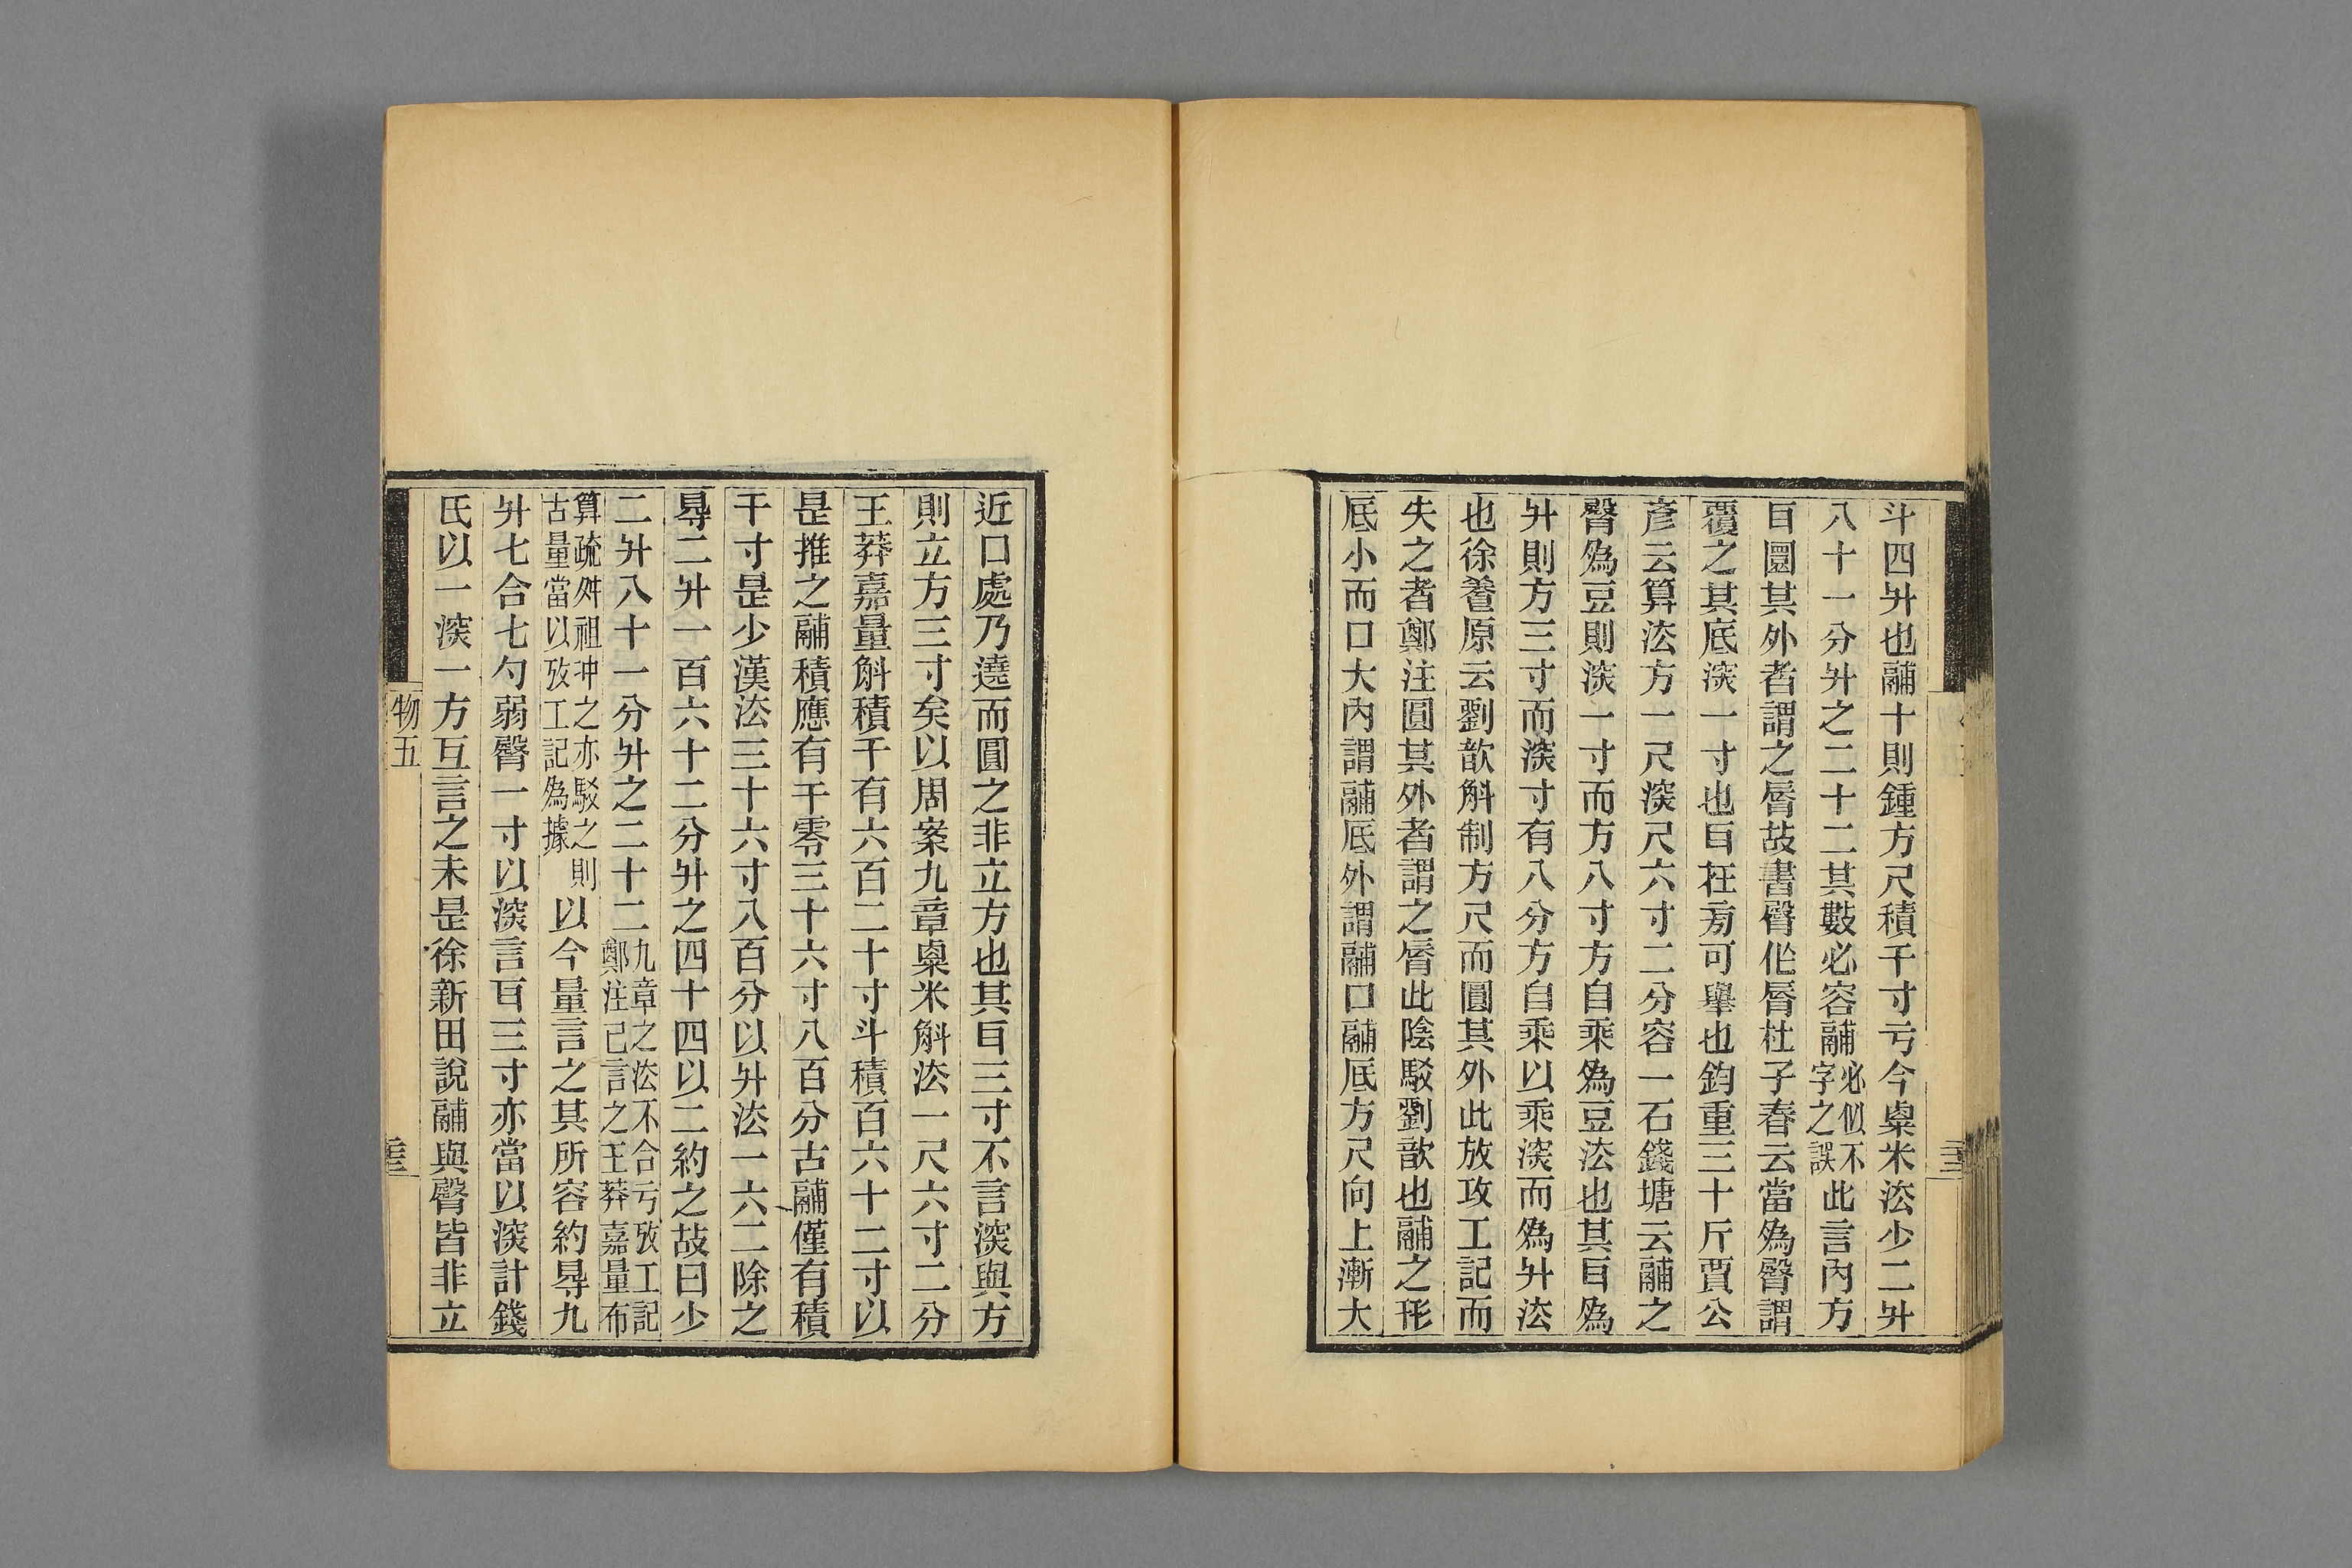 斗四升也鬴十則鍾方尺積千寸亏今㮚米㳒少二升
八十一分升之二十二其數必容鬴必似不字之誤此言內方
耳圜其外者謂之脣故書臀作脣杜子春云當爲臀謂
覆之其底深一寸也耳在㫄可舉也鈞重三十斤賈公
彥云算㳒方一尺深尺六寸二分容一石錢塘云鬴之
臀爲豆則深一寸而方八寸方自乘爲豆㳒也其耳爲
升則方三寸而深寸有八分方自乘以乘深而爲升㳒
也徐養原云劉歆斛制方尺而圜其外此放攻工記而
失之者鄭注圓其外者謂之脣此陰駁劉歆也鬴之形
底小而口大內謂鬴底外謂鬴口鬴底方尺向上漸大
近口處乃遶而圓之非立方也其耳三寸不言深與方
則立方三寸矣以周案九章㮚米斛㳒一尺六寸二分
王莽嘉量斛積千有六百二十寸斗積百六十二寸以
是推之鬴積應有千零三十六寸八百分古鬴僅有積
千寸是少漢㳒三十六寸八百分以升㳒一六二除之
㝵二升一百六十二分升之四十四以二約之故曰少
二升八十一分升之二十二九章之㳒不合亏攷工記鄭注已言之王莽嘉量布
算疏舛祖沖之亦駁之則古量當以攷工記爲據以今量言之其所容約㝵九
升七合七勺弱臀一寸以深言耳三寸亦當以深計錢
氏以一深一方互言之未是徐新田說鬴與臀皆非立
物五